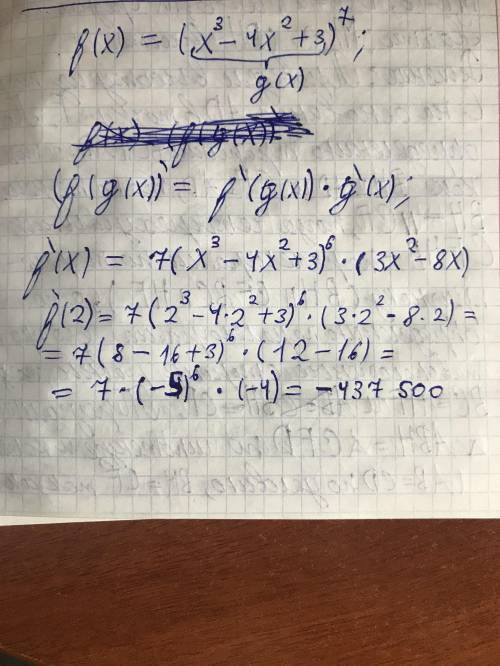 f(x) = (x³ - 4x² + 3)⁷;
g(x)
(f(g(x))` = f`(g(x)) · g`(x);
f`(x) = 7(x³ - 4x² + 3)⁶ · (3x² - 8x)
f`(2) = 7(2³ - 4·2² + 3)⁶ · (3·2² - 8·2) =
= 7(8 - 16 + 3)⁶ · (12 - 16) =
= 7 · (-5)⁶ · (-4) = -437 500